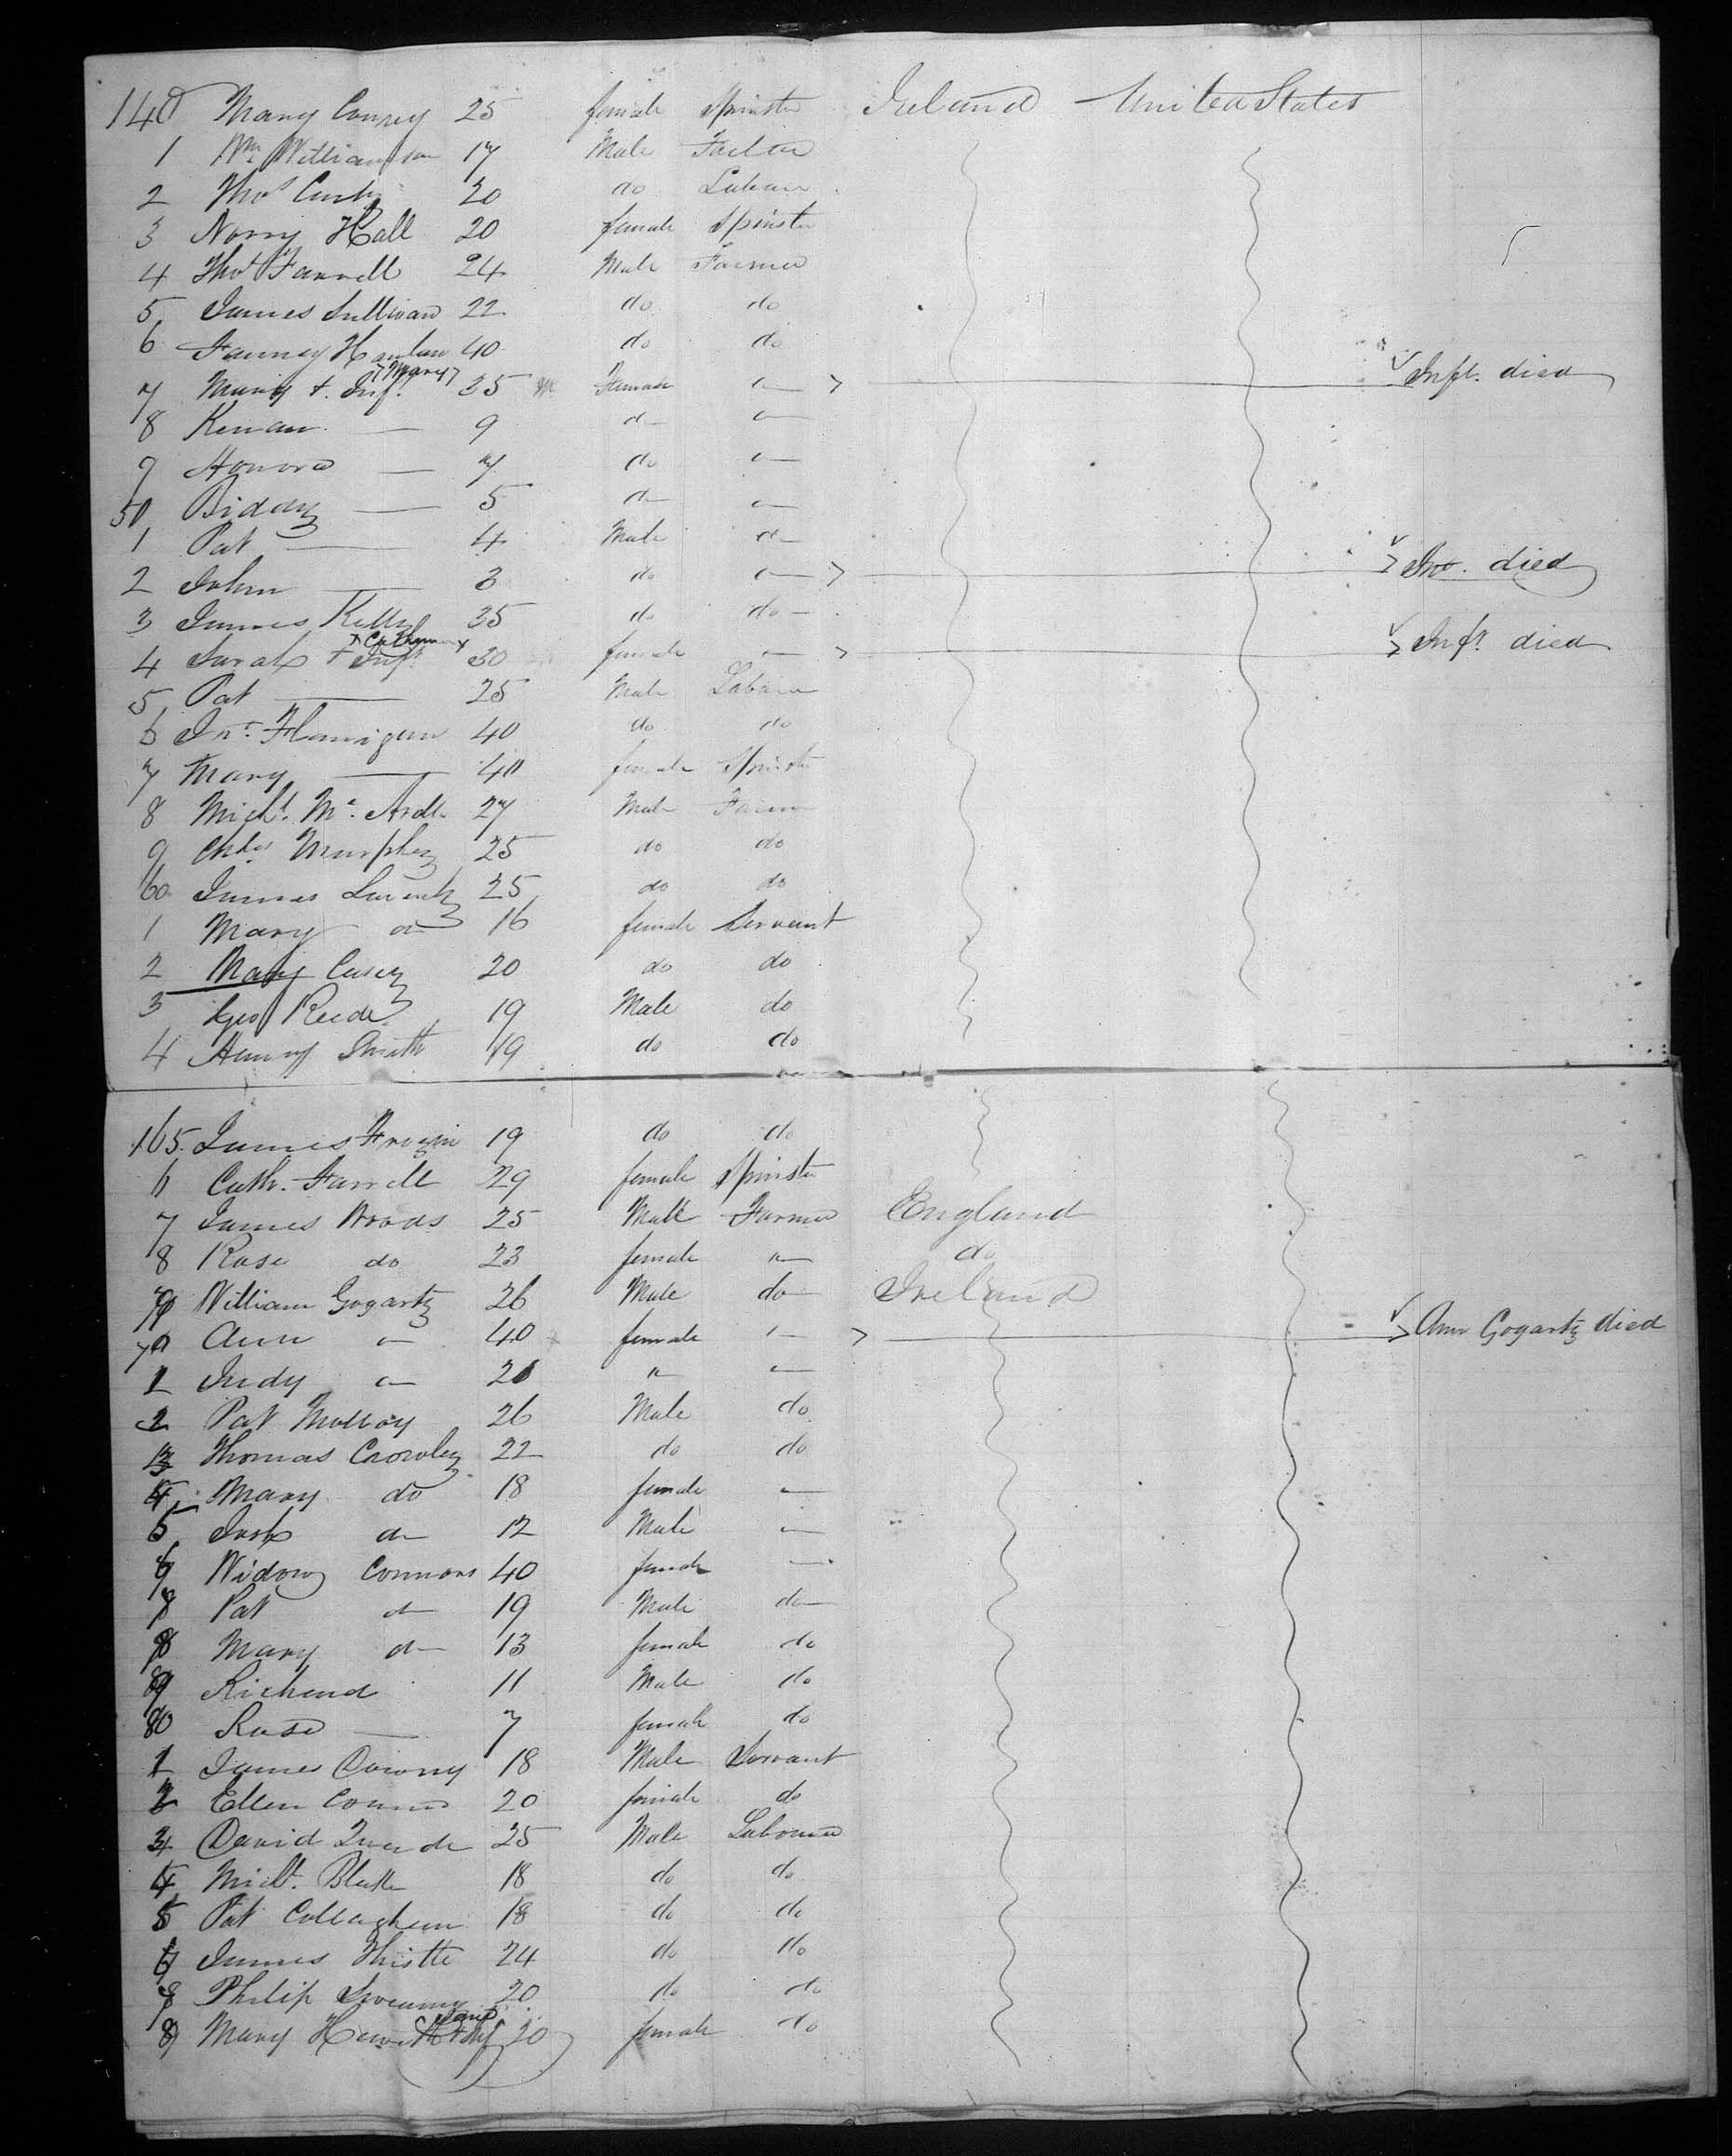 140 Mary Conrey 25 female Spinster Ireland United States
1 Wm Williamson 17 Male
2 Thos 20 do Labour
3 Norry Hall 20 female Spinster
4 Thos Farrell 24 Male Farmer
5 James Sullivan 22 do do
6 Hanlan 40 do do
"Mary"
7 + Inf. 35 Female — Inft. died
8 — 9 do —
9 Honora — 7 do —
50 Biddy — 5 do —
1 Pat — 4 Male do
2 John — 3 do — Jno. died
3 James Kelly 35 do do
x Catherine x
4 Sarah + Inft 30 female — Inft. died
5 Pat — 25 Male Labour
6 Jno. Flannigan 40 do do
7 Mary — 40 female Spinster
8 Michl. Mc Ardle 27 Male Farmer
9 Chas Murphy 25 do do
60 James 25 do do
1 Mary do 16 female Servant
2 Mary Casey 20 do do
3 Geo Reede 19 Male do
4 Henry Smith 19 do do
165 James 19 do do
6 Cath. Farrell 29 female Spinster
7 James Woods 25 Male Farmer England
8 Rose do 23 female — do
9 William Gogarty 26 Male do Ireland
70 Ann — 40 female — Ann Gogarty died
1 Judy — 20 — —
2 Pat Molloy 26 Male do
3 Thomas Crowley 22 do do
4 Mary do 18 female —
5 do 12 Male —
6 Widow Connors 40 female —
7 Pat do 19 Male do
8 Mary do 13 female do
9 Richard 11 Male do
80 Rose — 7 female do
1 James Downy 18 Male Servant
2 Ellen 20 female do
3 David 25 Male Labourer
4 Michl. Blake 18 do do
5 Pat Callaghan 18 do do
6 James Thistle 24 do do
7 Philip 20 do do
Jane
8 Mary Hewitt + Inf 20 female do